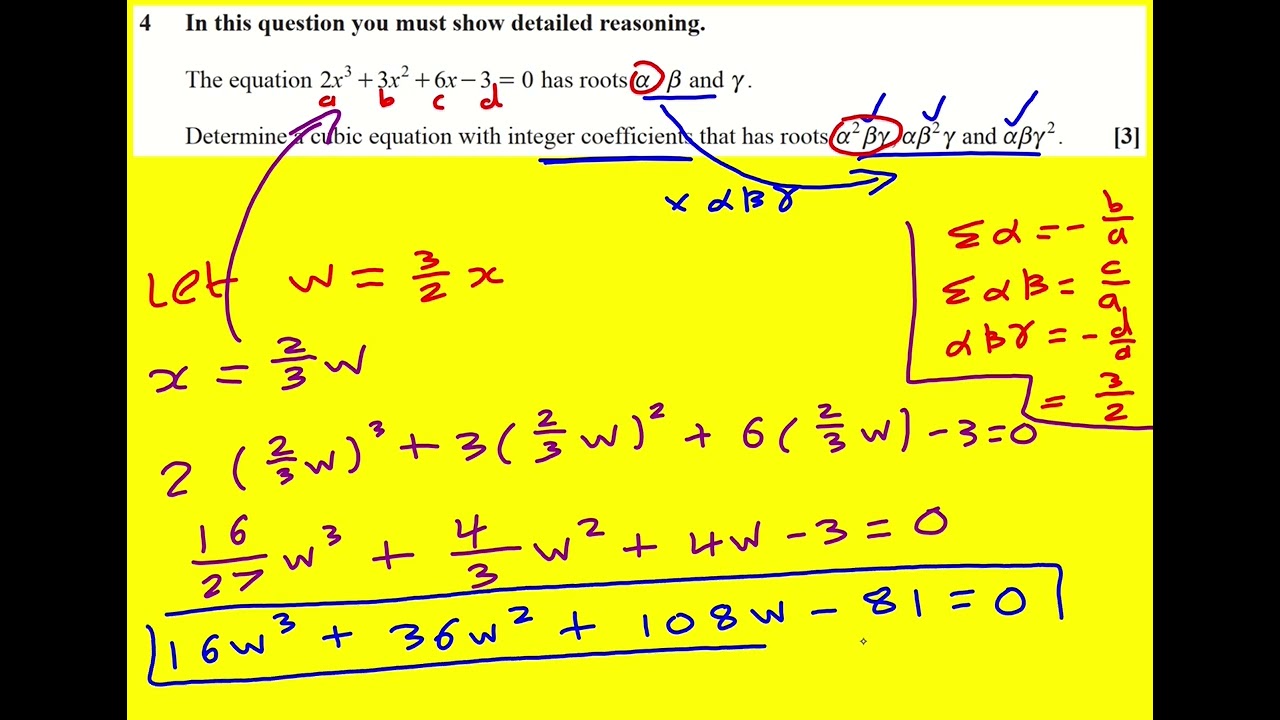 4 In this question you must show detailed reasoning.
The equation 2x³ + 3x² + 6x − 3 = 0 has roots α, β and γ.
a b c d
Determine a cubic equation with integer coefficients that has roots α²βγ, αβ²γ and αβγ². [3]
× αβγ
Σα = − b/a
Σαβ = c/a
αβγ = − d/a
= 3/2
Let w = 3/2 x
x = 2/3 w
2 (2/3 w)³ + 3 (2/3 w)² + 6 (2/3 w) − 3 = 0
16/27 w³ + 4/3 w² + 4w − 3 = 0
16w³ + 36w² + 108w − 81 = 0